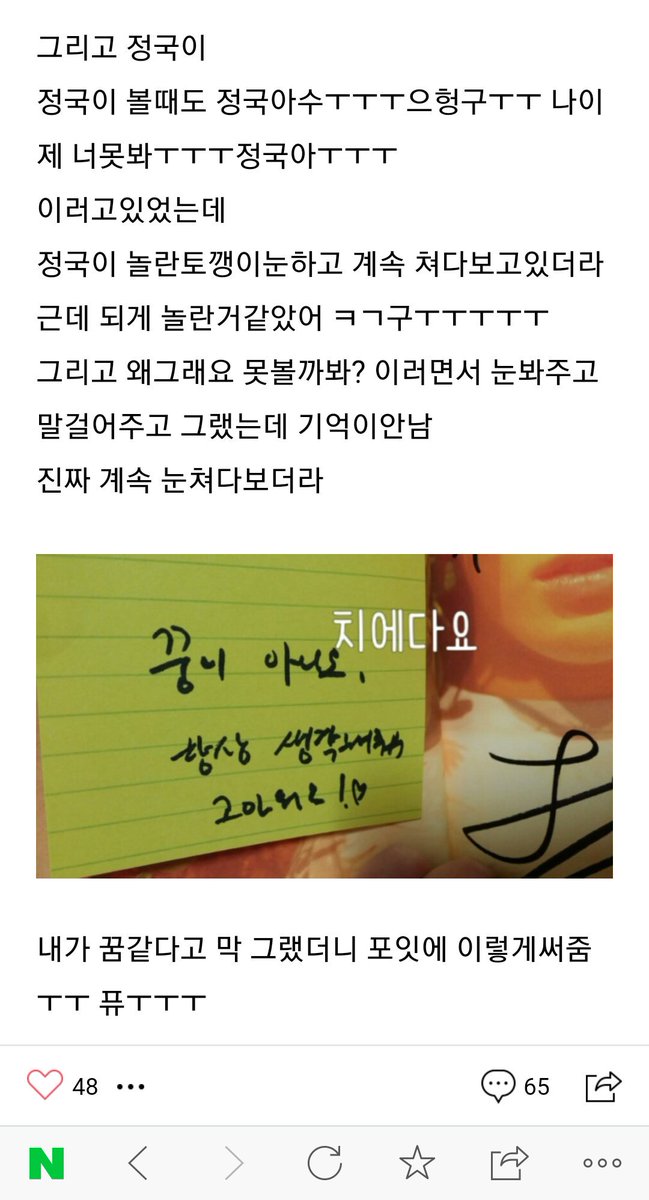 그리고 정국이
정국이 볼때도 정국아수ㅜㅜㅜ으헝구ㅜㅜ 나이
제 너못봐ㅜㅜㅜ정국아ㅜㅜㅜ
이러고있었는데
정국이 놀란토깽이눈하고 계속 쳐다보고있더라
근데 되게 놀란거같았어 ㅋㄱ구ㅜㅜㅜㅜㅜ
그리고 왜그래요 못볼까봐? 이러면서 눈봐주고
말걸어주고 그랬는데 기억이안남
진짜 계속 눈쳐다보더라
치에다요
꿈이 아니오,
항상 생각해줘서
고마워요!♡
내가 꿈같다고 막 그랬더니 포잇에 이렇게써줌
ㅜㅜ 퓨ㅜㅜㅜ
48
65
N